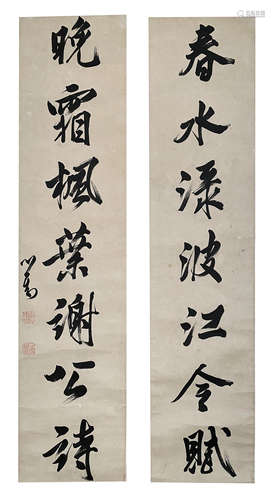 春水渌波江令賦
晚霜楓葉謝公詩
心畬